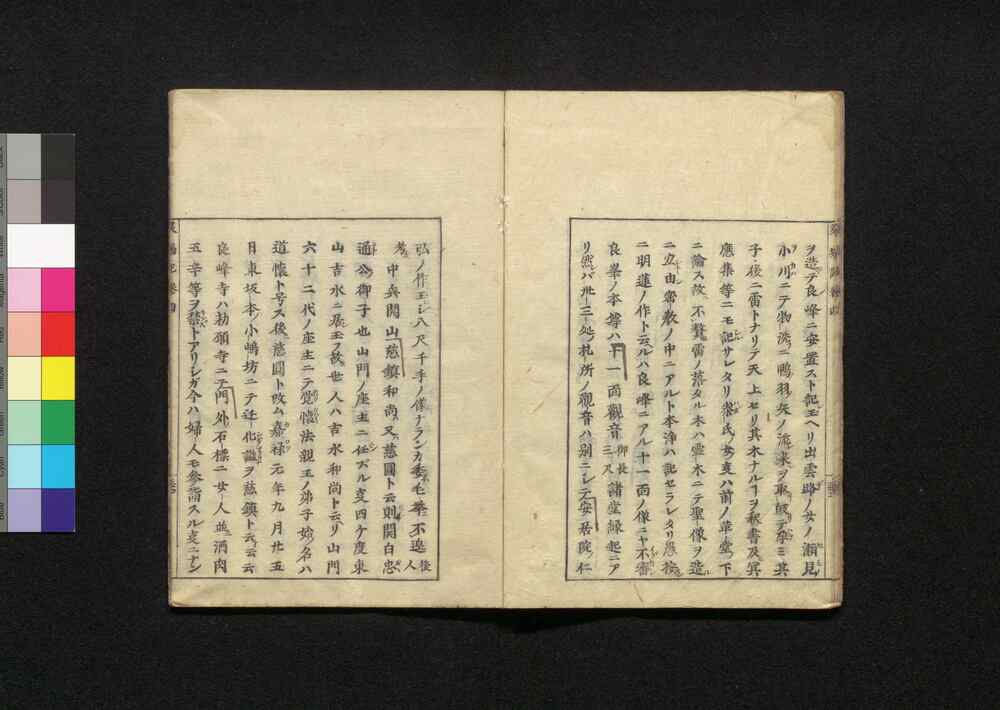 ヲ造テ良峰ニ安置スト記玉ヘリ出雲路ノ女ノ瀬見
小川ニテ物洗ニ鴨羽ノ矢ノ流来ヲ取皈テ孕ミ其
子後ニ雷トナリテ天上セリ其木ナルヿヲ釈書及冥
應集等ニモ記サレタリ業氏ノ女事ハ前ノ革堂ノ下
ニ論スル故不贅雷ノ落タル木ハ霊木ニテ聖像ヲ造
ニ立由密教ノ中ニアルト本浄ハ記セラレタリ愚按
ニ明蓮ノ作ト云ルハ良峰ニアル十一面ノ像ニヤ不審
良峯ノ本尊ハ十一面観音御長三尺諸堂縁起ニア
リ然バ卅三処札所ノ観音ハ別ニシテ安居院ノ仁
弘ノ作玉シ八尺千手ノ像ナランカ委モ筆不遑後人
考 中興開山慈鎮和尚又慈圓ト云則関白忠
通公御子也山門ノ座主ニ任ズル事四ケ度東
山吉水ニ居玉フ故世人ハ吉水和尚ト云リ山門
六十二代ノ座主ニテ覚快法親王ノ弟子始名ハ
道快ト号ス後慈圓ト改ム嘉禄元年九月廿五
日東坂本小嶋坊ニテ迁化謚ヲ慈鎮ト云云云
良峰寺ハ勅願寺ニテ門外石標ニ女人並酒肉
五辛等ヲ禁トアリシガ今ハ婦人モ参詣スル事ニナン